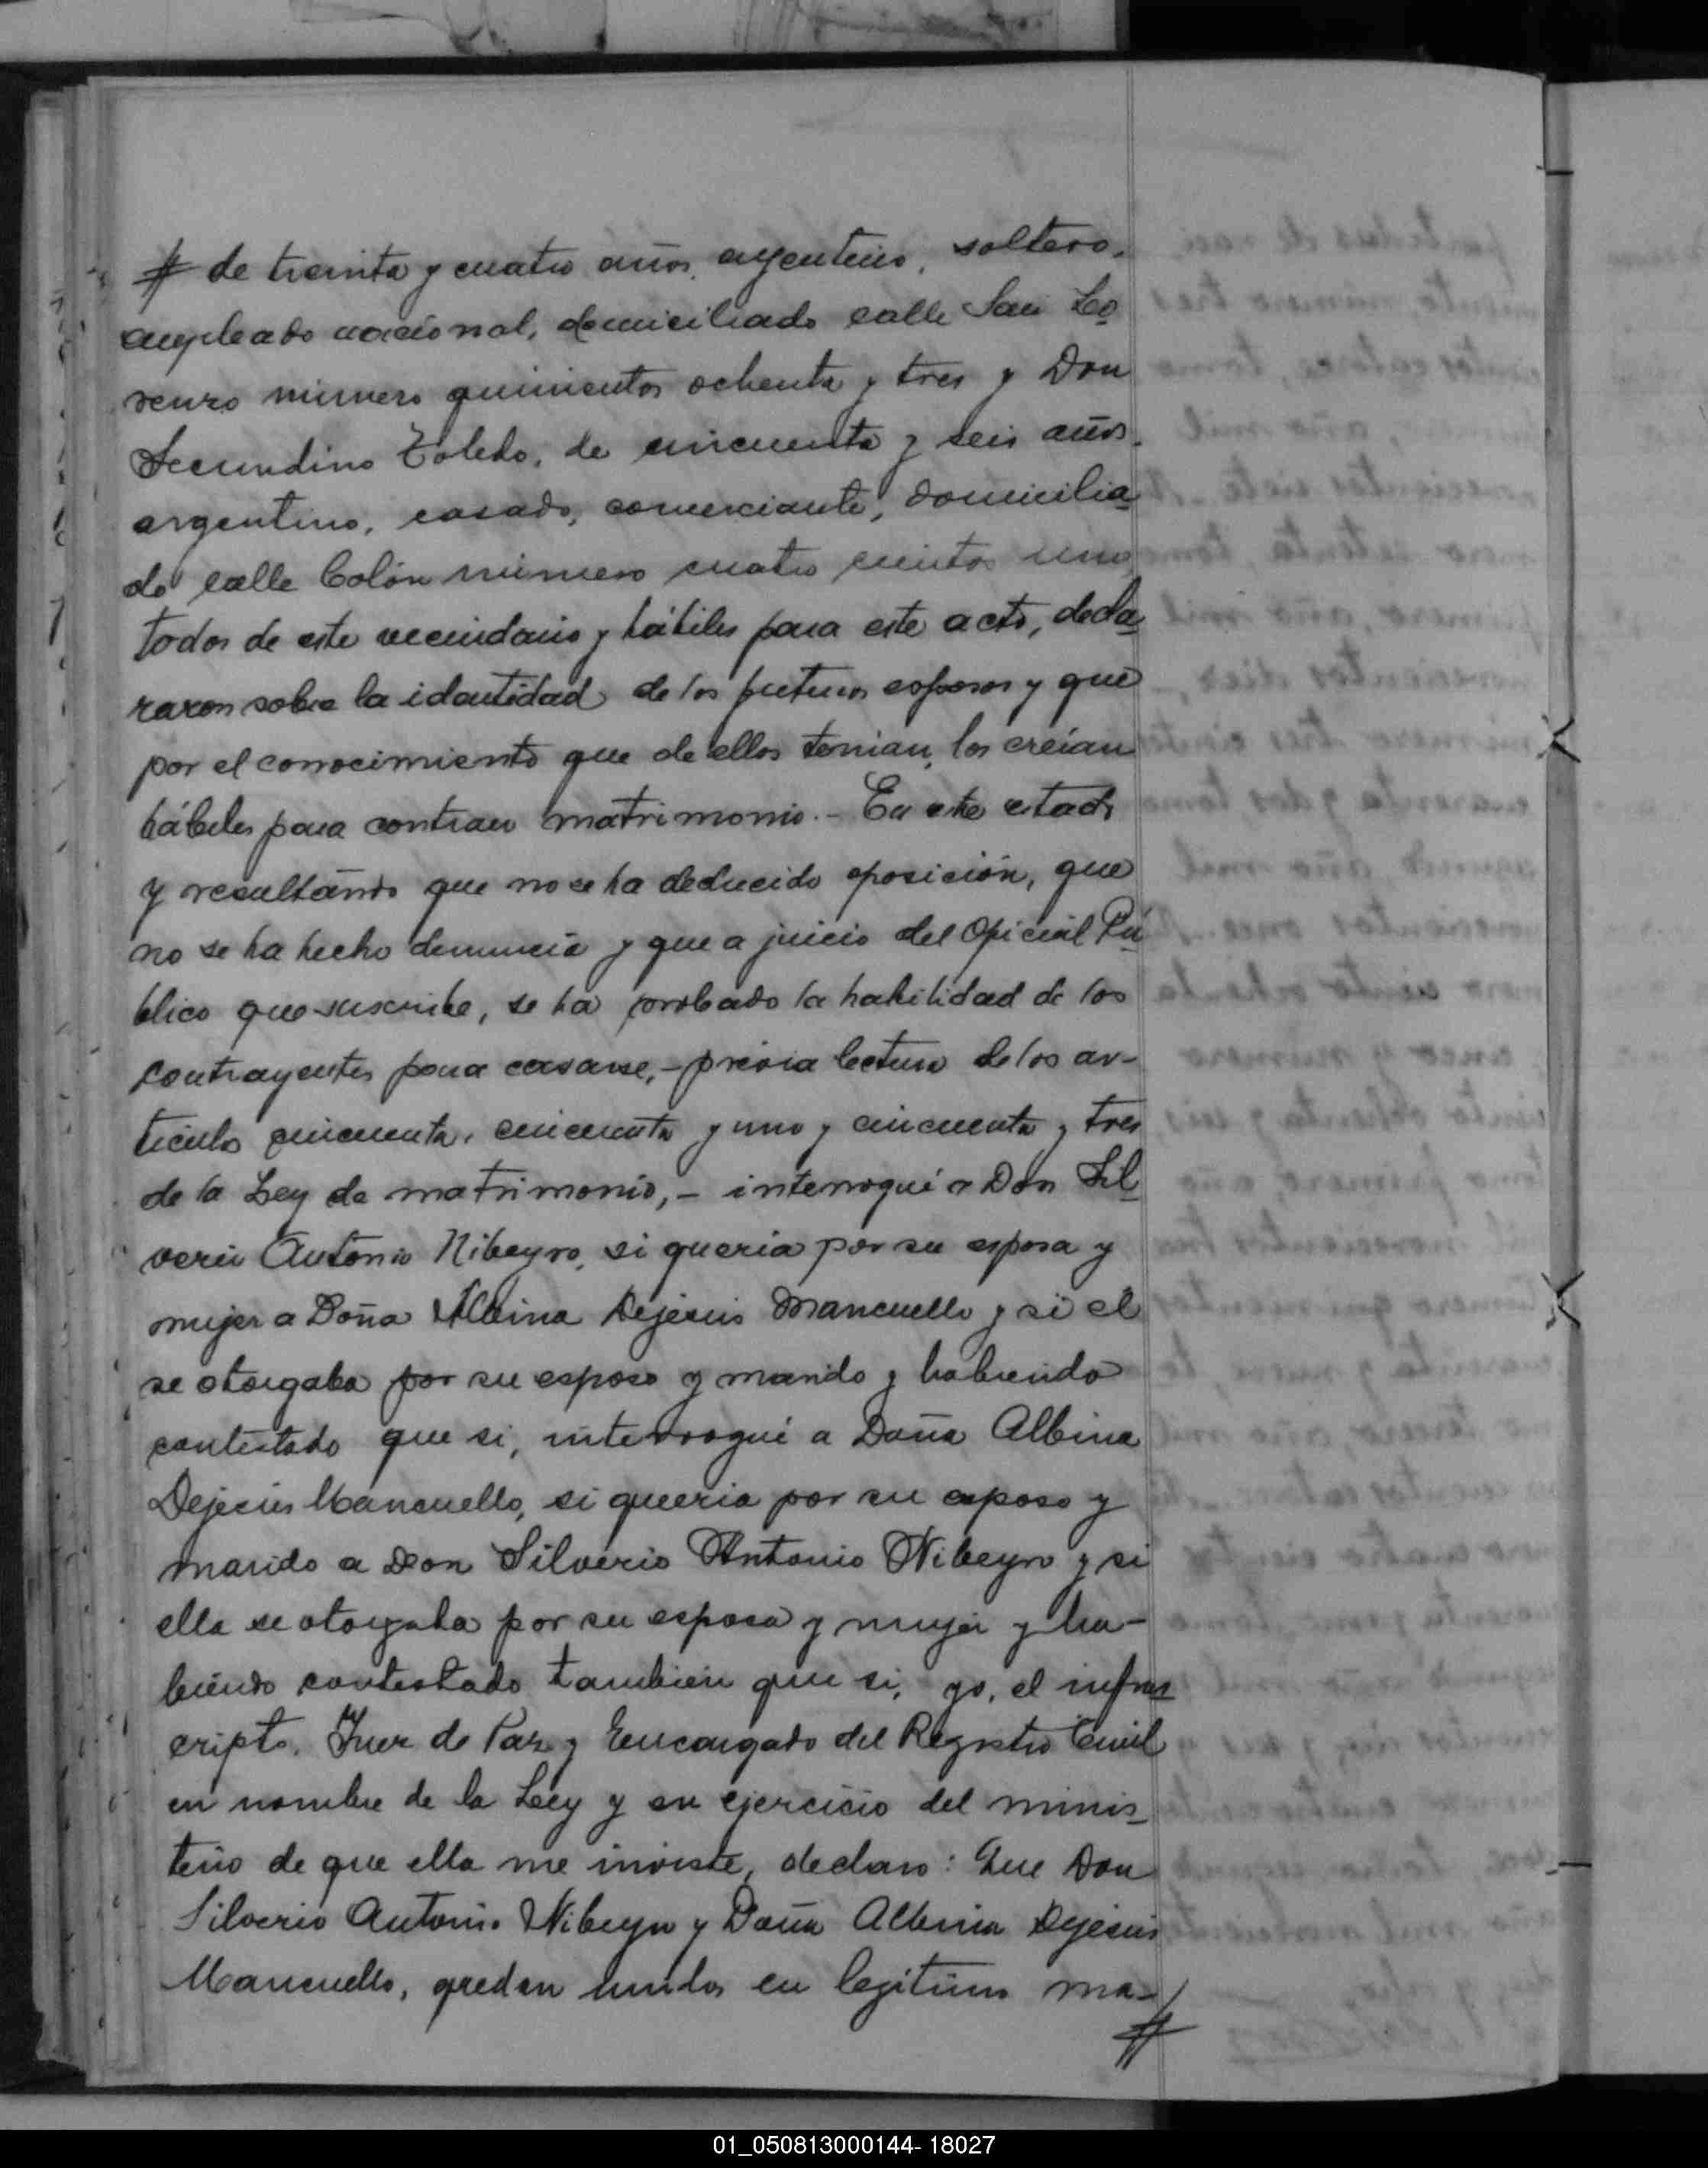 # de treinta y cuatro años, argentino, soltero,
empleado nacional, domiciliado calle San Lo
renzo número quinientos ochenta y tres y Don
Secundino Toledo, de cincuenta y seis años,
argentino, casado, comerciante, domicilia
do calle Colón número cuatro cientos uno
todos de este vecindario y hábiles para este acto, decla
raron sobre la identidad de los futuros esposos y que
por el conocimiento que de ellos tenian, los creían
hábiles para contraer matrimonio.- En este estado
y resultando que no se ha deducido oposición, que
no se ha hecho denuncia y que a juicio del Oficial Pú
blico que suscribe, se ha probado la habilidad de los
contrayentes para casarse,- previa lectura de los ar-
tículos cincuenta, cincuenta y uno y cincuenta y tres
de la Ley de matrimonio,- interrogué a Don Sil
verio Antonio Nibeyro, si quería por su esposa y
mujer a Doña Albina Dejesús Mancuello y si el
se otorgaba por su esposo y marido y habiendo
contestado que si, interrogué a Doña Albina
Dejesús Mancuello, si quería por su esposo y
marido a Don Silverio Antonio Nibeyro y si
ella se otorgaba por su esposa y mujer y ha-
biendo contestado también que si, yo, el infras
cripto, Juez de Paz y Encargado del Registro Civil
en nombre de la Ley y en ejercicio del minis
terio de que ella me inviste, declaro: Que Don
Silverio Antonio Nibeyro y Doña Albina Dejesús
Mancuello, quedan unidos en legítimo ma-
#
01_050813000144- 18027